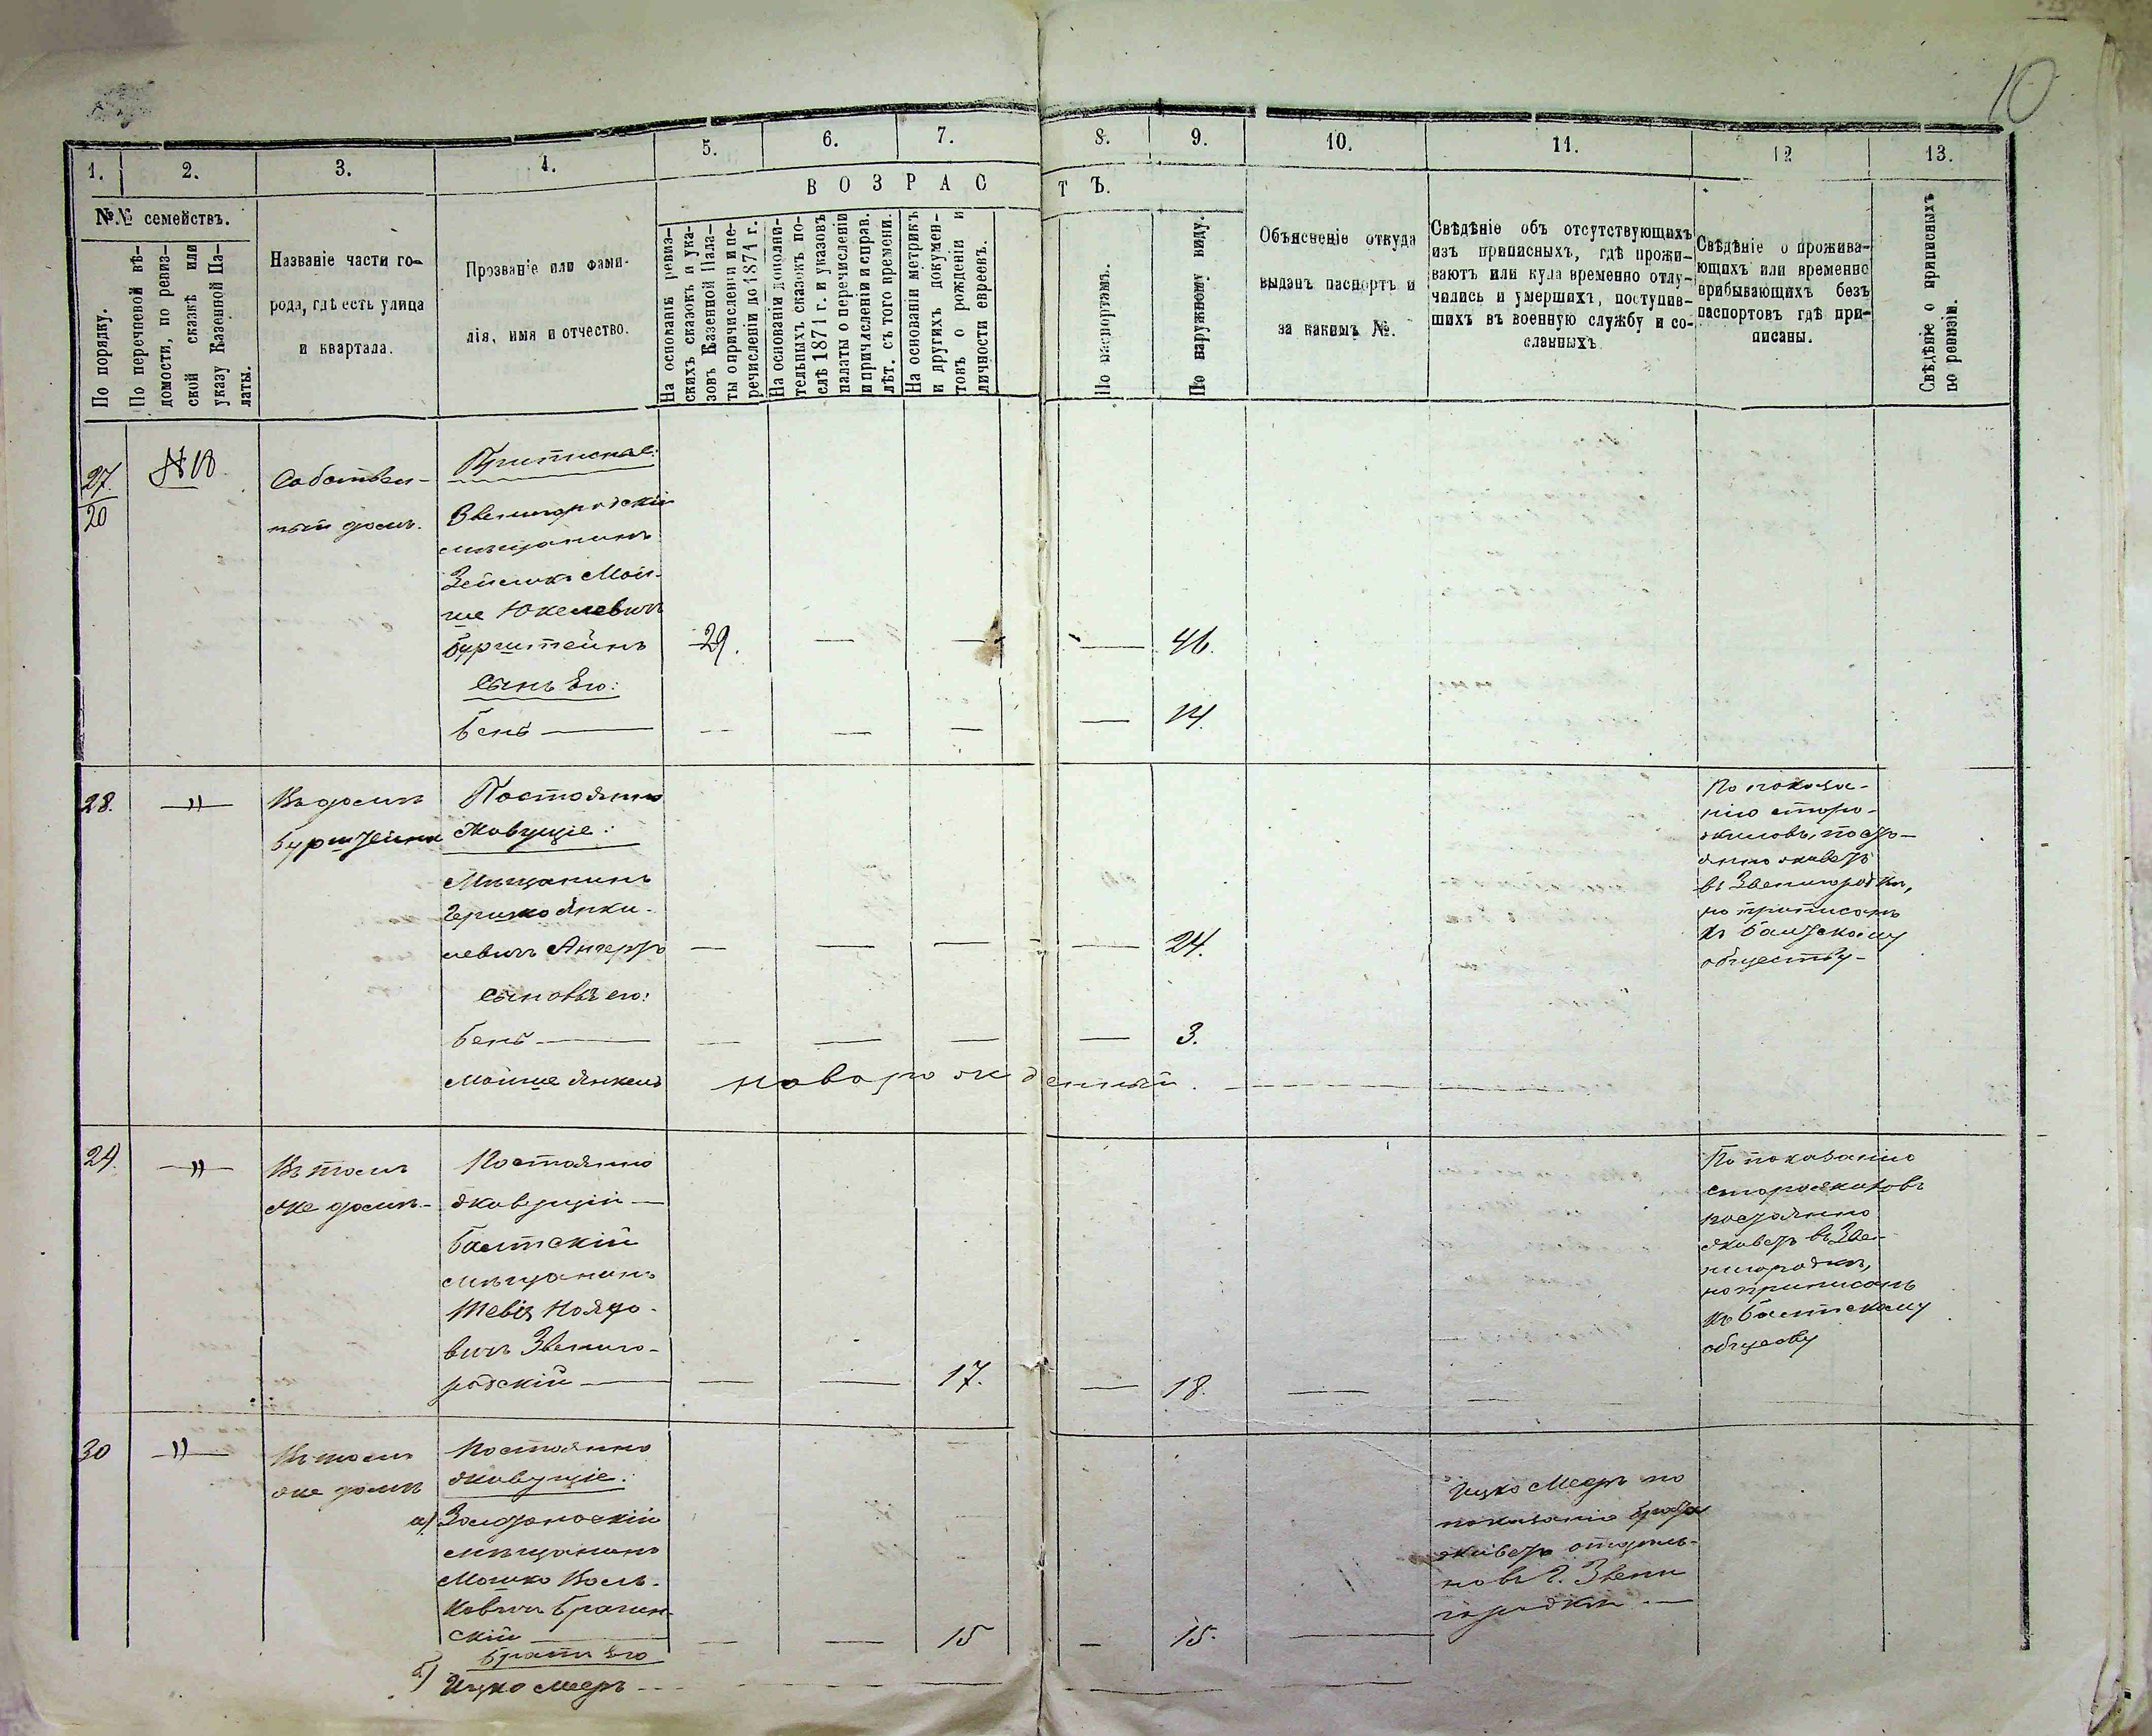 10
1. 2. 3. 4. 5. 6. 7. 8. 9. 10. 11. 12 13.
В О З Р А С Т Ъ.
№№ семействъ.
По порядку.
По перечневой вѣ-
домости, по ревиз-
ской сказкѣ или
указу Казенной Па-
латы.
Названіе части го-
рода, гдѣ есть улица
и квартала.
Прозваніе или фами-
лія, имя и отчество.
На основаніи ревиз-
скихъ сказокъ и ука-
зовъ Казенной Пала-
ты о причисленіи и пе-
речисленіи до 1871 г.
На основаніи дополни-
тельныхъ сказокъ по-
слѣ 1871 г. и указовъ
палаты о перечисленіи
и причисленіи и справ.
лѣт. съ того времени.
На основаніи метрикъ
и другихъ докумен-
товъ о рожденіи и
личности евреевъ.
По паспортамъ.
По наружному виду.
Объясненіе откуда
выданъ паспортъ и
за какимъ №.
Свѣдѣніе объ отсутствующихъ
изъ приписныхъ, гдѣ прожи-
ваютъ или куда временно отлу-
чились и умершихъ, поступив-
шихъ въ военную службу и со-
сланныхъ
Свѣдѣніе о прожива-
ющихъ или временно
прибывающихъ безъ
паспортовъ гдѣ при-
писаны.
Свѣдѣніе о приписныхъ
по ревизіи.
27.
20
Собствен-
ный домъ.
Приписные:
Звенигородскій
мѣщанинъ
Зейликъ Мой-
ше Юкелевичъ
Бурштейнъ
29. — — — 46.
Сынъ Его:
Бенъ — — — — — 14.
28. —"—
Въ домѣ
Бурштейна
Постоянно
живущіе:
Мѣщанинъ
Гершко Янки-
левичъ
— — — — 24.
Сыновья его:
Бенъ — — — — — 3.
Мойше Янкель новорожденный.
По показа-
нію старо-
жиловъ, посто-
янно живетъ
въ Звенигородкѣ,
но приписанъ
къ Балтскому
обществу-
29. —"—
Въ томъ
же домѣ-
Постоянно
живущій —
Балтскій
мѣщанинъ
Тевія
вичъ Звениго-
родскій — — — 17. — 18. — —
По показанію
старожиловъ
постоянно
живетъ въ Зве-
нигородкѣ,
но приписанъ
къ Балтскому
обществу
30 —"—
Въ томъ
же домѣ
Постоянно
живущіе:
а) Золотоноскій
мѣщанинъ
Мошко Воль-
ковичъ Брагин-
скій — — — 15 — 15. —
Братъ Его
б) Ицко Мееръ
Ицко Мееръ по
показанію брата
живетъ отдѣль-
но въ г. Звени
городкѣ —